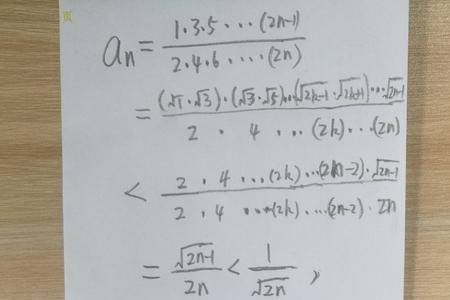 页
a_n = \frac{1·3·5···(2n-1)}{2·4·6···(2n)}
= \frac{(√1·√3)·(√3·√5)···(√2k-1·√2k+1)···√2n-1}{2·4···(2k)···(2n)}
< \frac{2·4···(2k)···(2n-2)·√2n-1}{2·4···(2k)···(2n-2)·2n}
= \frac{√2n-1}{2n} < \frac{1}{√2n},